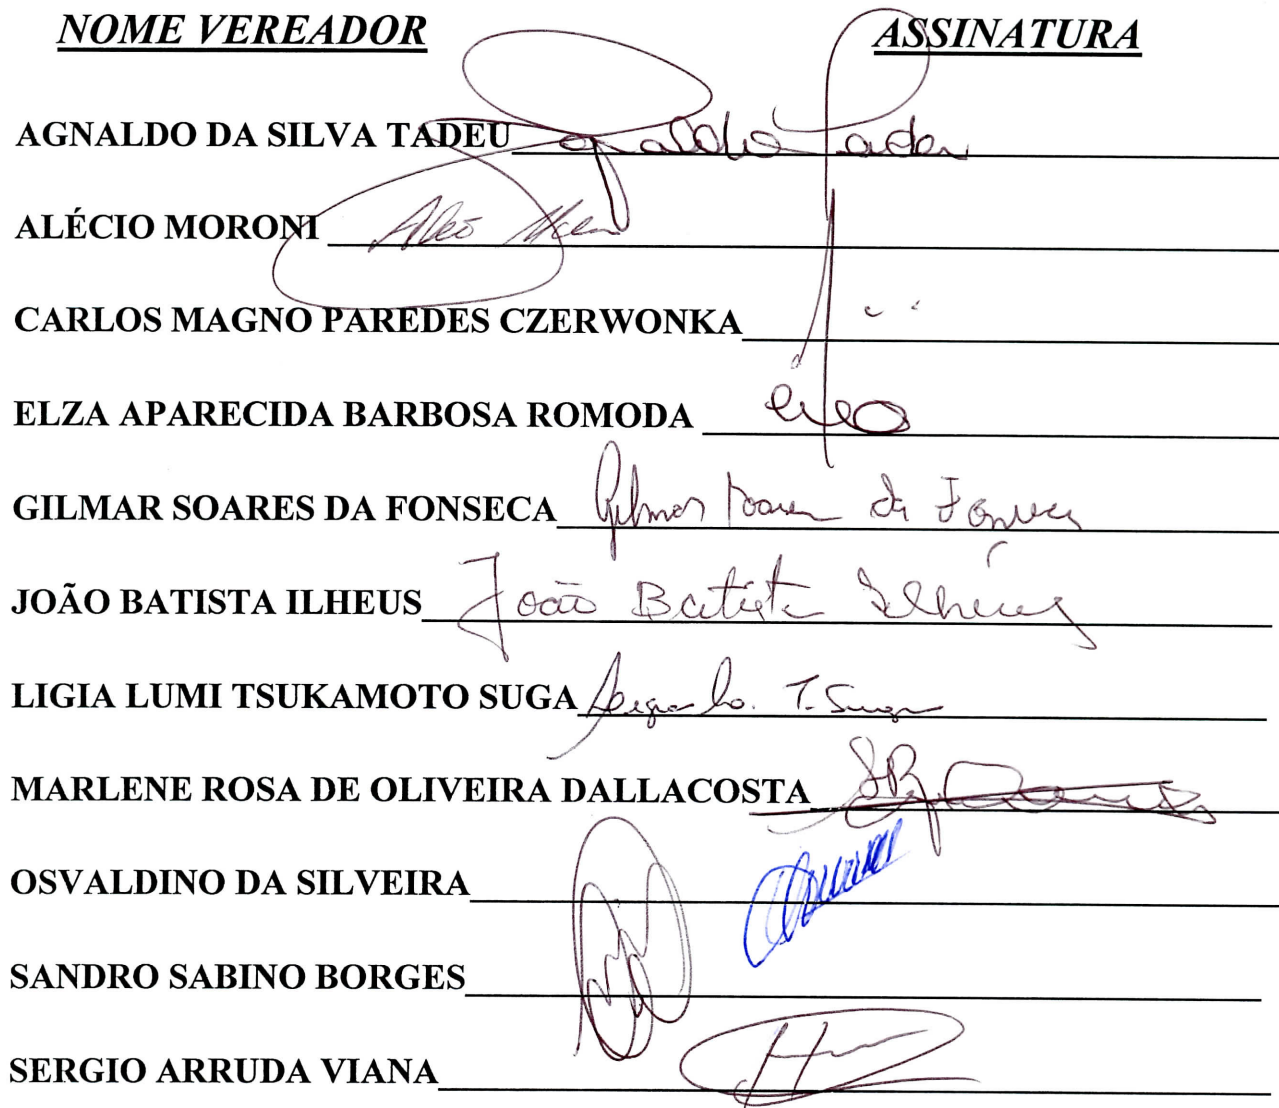 NOME VEREADOR ASSINATURA
AGNALDO DA SILVA TADEU Agnaldo Tadeu
ALÉCIO MORONI
CARLOS MAGNO PAREDES CZERWONKA
ELZA APARECIDA BARBOSA ROMODA
GILMAR SOARES DA FONSECA Gilmar Soares da Fonseca
JOÃO BATISTA ILHEUS João Batista Ilhéus
LIGIA LUMI TSUKAMOTO SUGA
MARLENE ROSA DE OLIVEIRA DALLACOSTA
OSVALDINO DA SILVEIRA
SANDRO SABINO BORGES
SERGIO ARRUDA VIANA